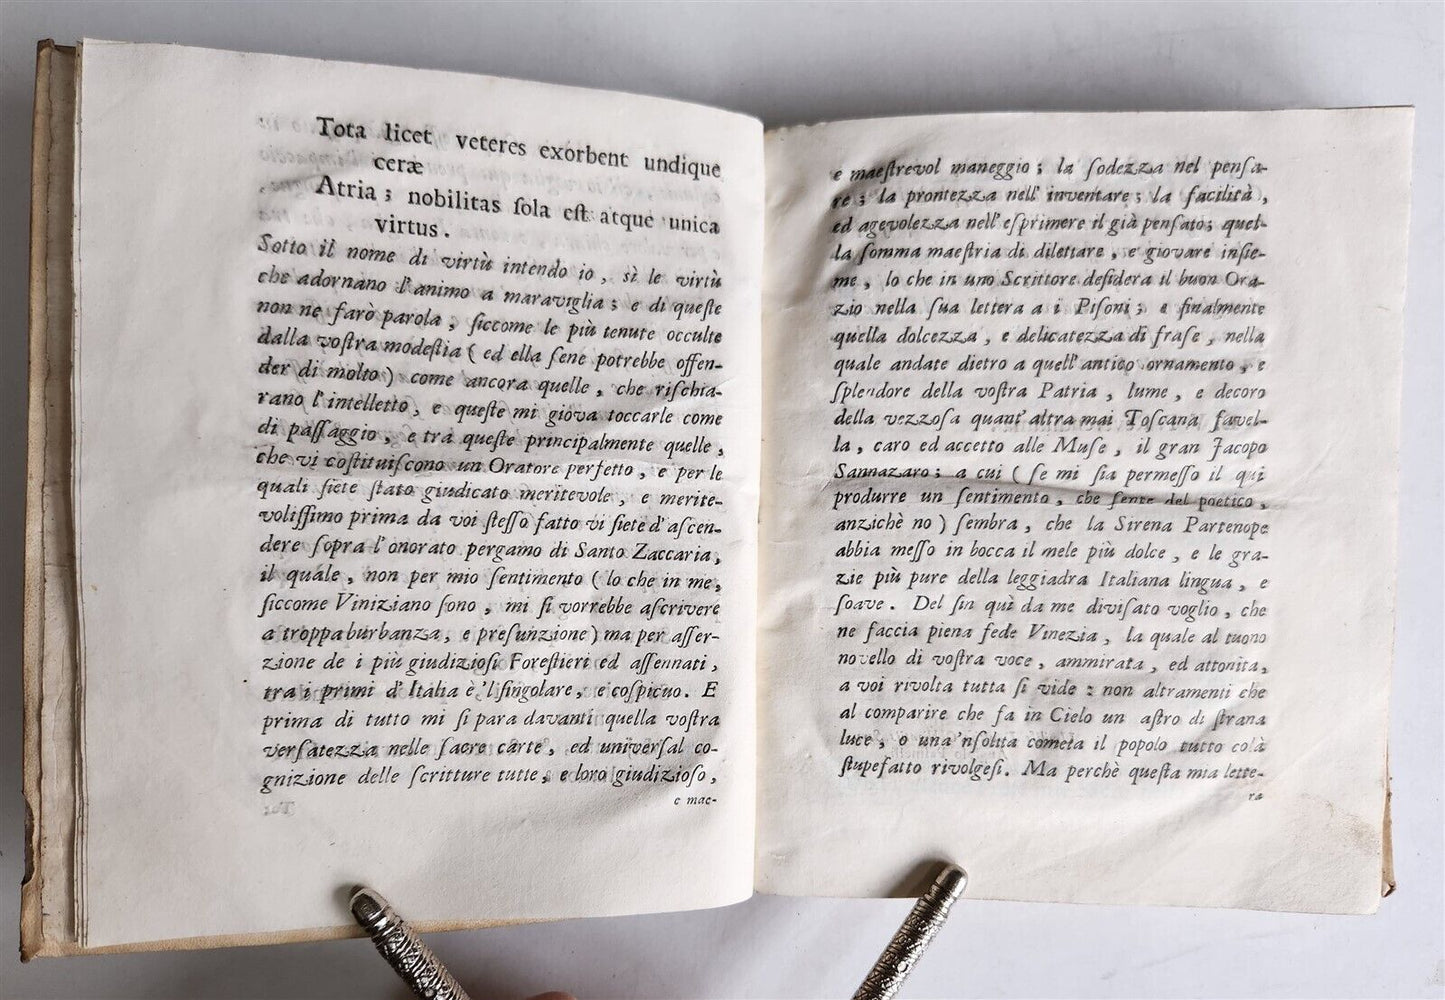 Tota licet veteres exorbent undique
ceræ
Atria; nobilitas ſola eſt atque unica
virtus.
Sotto il nome di virtù intendo io, sì le virtù
che adornano l'animo a maraviglia; e di queſte
non ne farò parola, ſiccome le più tenute occulte
dalla voſtra modeſtia (ed ella ſene potrebbe offen-
der di molto) come ancora quelle, che riſchia-
rano l'intelletto, e queſte mi giova toccarle come
di paſſaggio, e tra queſte principalmente quelle,
che vi coſtituiſcono un Oratore perfetto, e per le
quali ſiete ſtato giudicato meritevole, e merite-
voliſſimo prima da voi ſteſſo fatto vi ſiete d'aſcen-
dere ſopra l'onorato pergamo di Santo Zaccaria,
il quale, non per mio ſentimento (lo che in me,
ſiccome Viniziano ſono, mi ſi vorrebbe aſcrivere
a troppa burbanza, e preſunzione) ma per aſſer-
zione de i più giudizioſi Foreſtieri ed aſſennati,
tra i primi d'Italia è 'l ſingolare, e coſpicuo. E
prima di tutto mi ſi para davanti quella voſtra
verſatezza nelle ſacre carte, ed univerſal co-
gnizione delle ſcritture tutte, e loro giudizioſo,
e mae-
e maeſtrevol maneggio; la ſodezza nel penſa-
re; la prontezza nell' inventare; la facilità,
ed agevolezza nell' eſprimere il già penſato; quel-
la ſomma maeſtria di dilettare, e giovare inſie-
me, lo che in uno Scrittore deſidera il buon Ora-
zio nella ſua lettera a i Piſoni; e finalmente
quella dolcezza, e delicatezza di fraſe, nella
quale andate dietro a quell' antico ornamento, e
ſplendore della voſtra Patria, lume, e decoro
della vezzoſa quant' altra mai Toſcana favel-
la, caro ed accetto alle Muſe, il gran Jacopo
Sannazaro; a cui (ſe mi ſia permeſſo il quì
produrre un ſentimento, che ſente del poetico,
anzichè no) ſembra, che la Sirena Partenope
abbia meſſo in bocca il mele più dolce, e le gra-
zie più pure della leggiadra Italiana lingua, e
ſoave. Del ſin quì da me diviſato voglio, che
ne faccia piena fede Vinezia, la quale al tuono
novello di voſtra voce, ammirata, ed attonita,
a voi rivolta tutta ſi vide: non altramenti che
al comparire che fa in Cielo un aſtro di ſtrana
luce, o una 'nſolita cometa il popolo tutto colà
ſtupefatto rivolgeſi. Ma perchè queſta mia lette-
ra